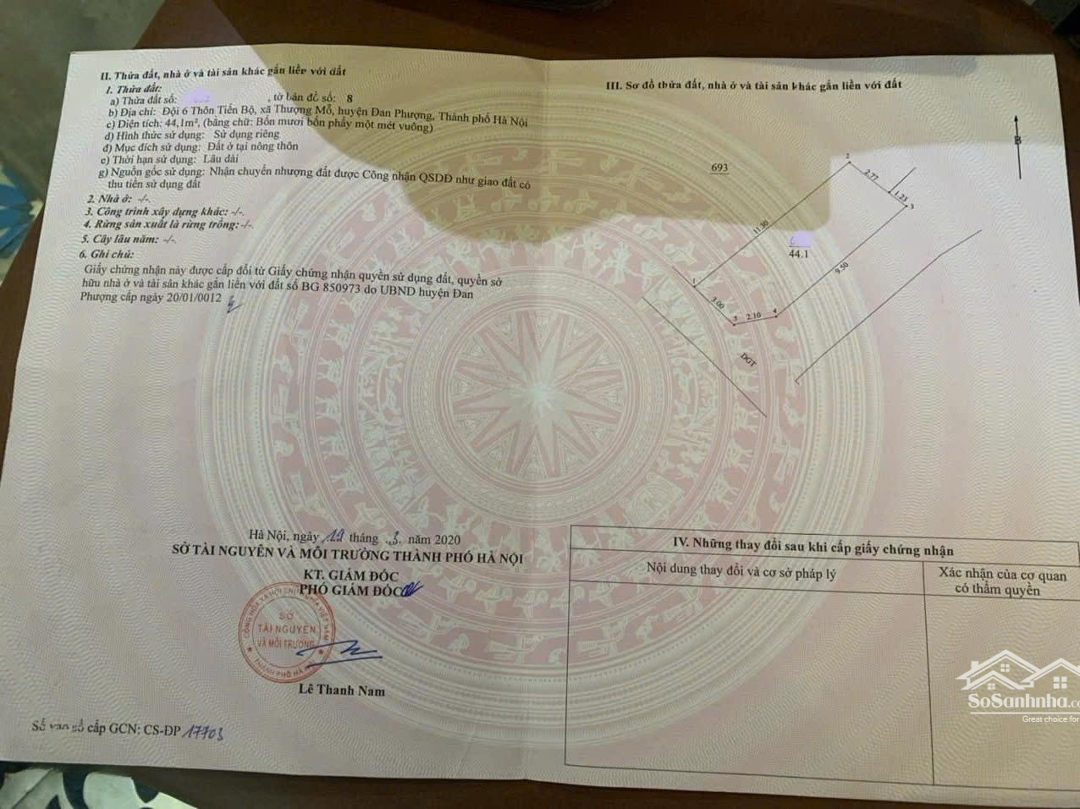 II. Thửa đất, nhà ở và tài sản khác gắn liền với đất
1. Thửa đất:
a) Thửa đất số: , tờ bản đồ số: 8
b) Địa chỉ: Đội 6 Thôn Tiến Bộ, xã Thượng Mỗ, huyện Đan Phượng, Thành phố Hà Nội
c) Diện tích: 44,1m², (bằng chữ: Bốn mươi bốn phẩy một mét vuông)
d) Hình thức sử dụng: Sử dụng riêng
đ) Mục đích sử dụng: Đất ở tại nông thôn
e) Thời hạn sử dụng: Lâu dài
g) Nguồn gốc sử dụng: Nhận chuyển nhượng đất được Công nhận QSDĐ như giao đất có
thu tiền sử dụng đất
2. Nhà ở: -/-.
3. Công trình xây dựng khác: -/-.
4. Rừng sản xuất là rừng trồng: -/-.
5. Cây lâu năm: -/-.
6. Ghi chú:
Giấy chứng nhận này được cấp đổi từ Giấy chứng nhận quyền sử dụng đất, quyền sở
hữu nhà ở và tài sản khác gắn liền với đất số BG 850973 do UBND huyện Đan
Phượng cấp ngày 20/01/0012
Hà Nội, ngày 19 tháng 3 năm 2020
SỞ TÀI NGUYÊN VÀ MÔI TRƯỜNG THÀNH PHỐ HÀ NỘI
KT. GIÁM ĐỐC
PHÓ GIÁM ĐỐC
SỞ
TÀI NGUYÊN
VÀ MÔI TRƯỜNG
THÀNH PHỐ HÀ NỘI
Lê Thanh Nam
Số vào sổ cấp GCN: CS-ĐP 17703
III. Sơ đồ thửa đất, nhà ở và tài sản khác gắn liền với đất
B
693
2
2.77
1.23
3
11.30
44.1
9.50
1
3.00
5
2.10
4
DGT
IV. Những thay đổi sau khi cấp giấy chứng nhận
Nội dung thay đổi và cơ sở pháp lý
Xác nhận của cơ quan
có thẩm quyền
SoSanhnha.c
Great choice for